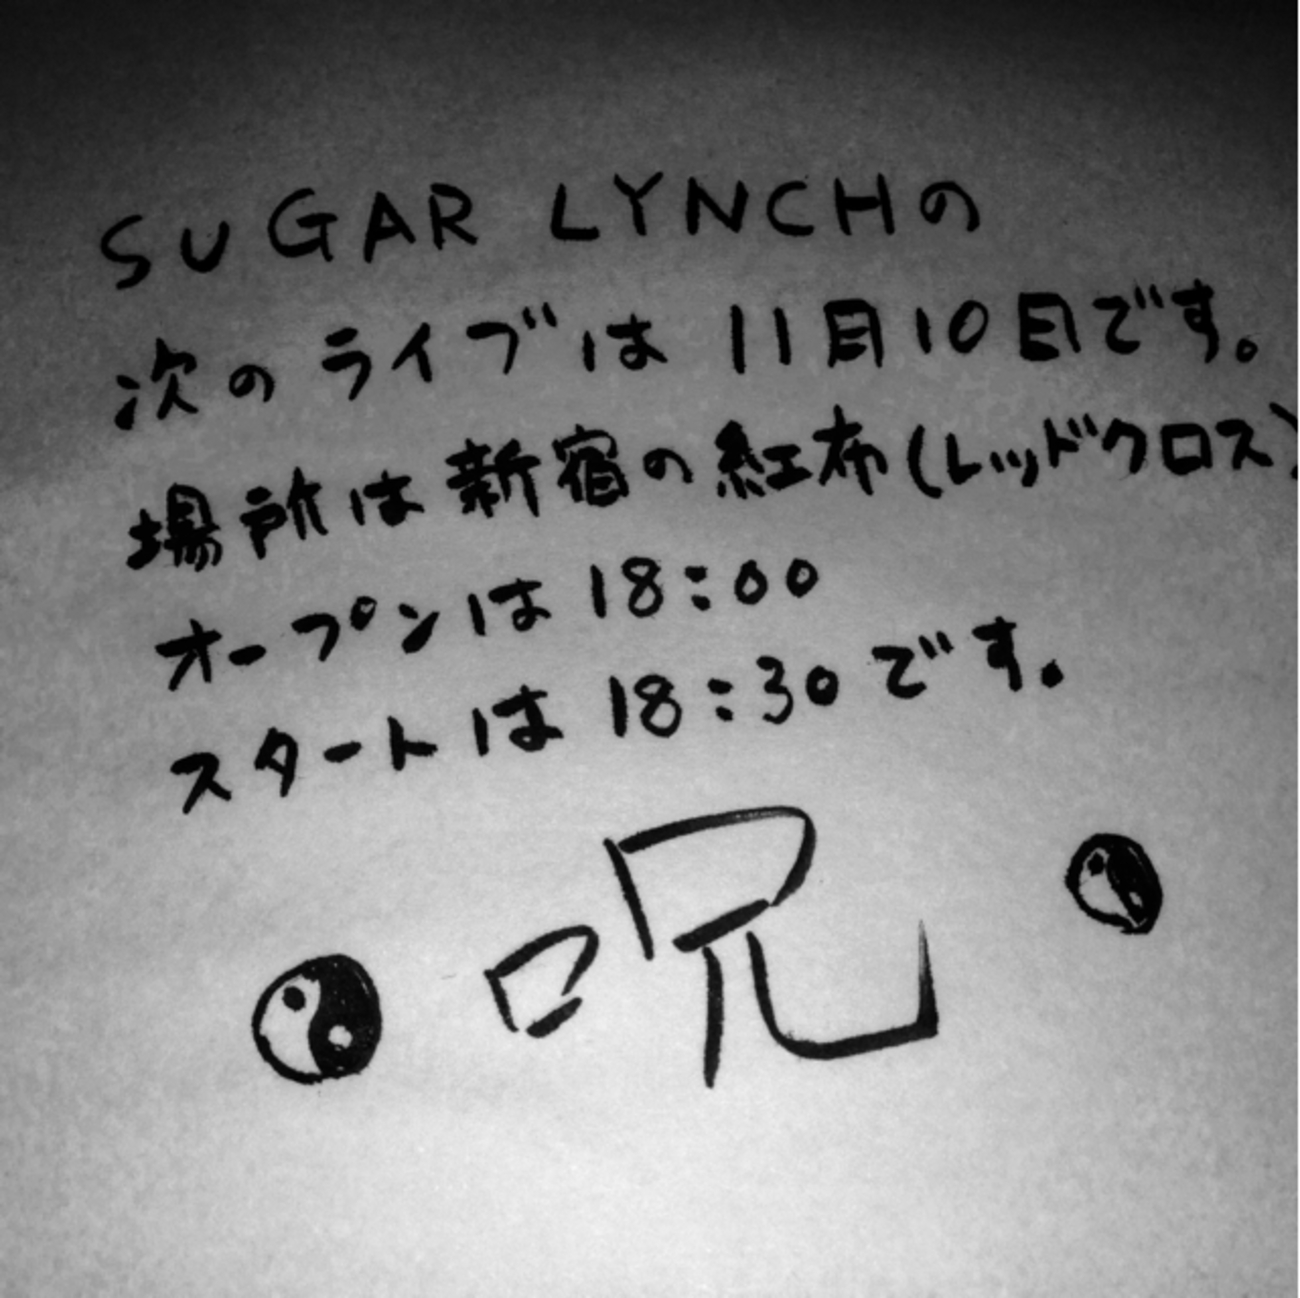 SUGAR LYNCHの
次のライブは 11月10日です。
場所は新宿の紅布(レッドクロス)
オープンは 18:00
スタートは 18:30です。
呪